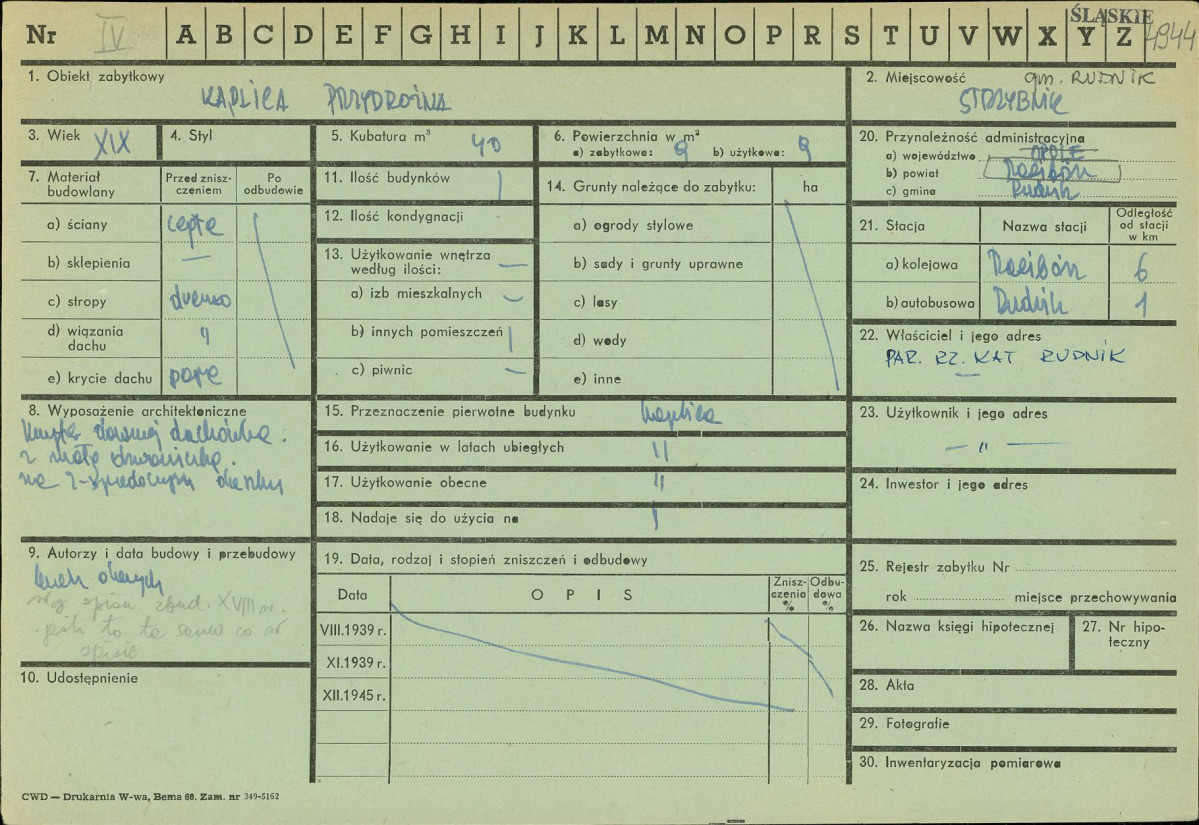 Nr IV A B C D E F G H I J K L M N O P R S T U V W X Y Z ŚLĄSKIE 4944
1. Obiekt zabytkowy
KAPLICA PRZYDROŻNA
2. Miejscowość gm. RUDNIK
STRZYBNIK
3. Wiek XIX
4. Styl
5. Kubatura m³ 40
6. Powierzchnia w m²
a) zabytkowa: 9 b) użytkowa: 9
7. Materiał budowlany
Przed zniszczeniem
Po odbudowie
a) ściany cegła
b) sklepienia —
c) stropy drewno
d) wiązania dachu "
e) krycie dachu papa
8. Wyposażenie architektoniczne
dachówka
9. Autorzy i data budowy i przebudowy
brak danych
wg spisu zbud. XVIII w.
jeśli to ta sama co w
spisie
10. Udostępnienie
11. Ilość budynków 1
12. Ilość kondygnacji
13. Użytkowanie wnętrza według ilości: —
a) izb mieszkalnych —
b) innych pomieszczeń 1
c) piwnic —
14. Grunty należące do zabytku: ha
a) ogrody stylowe
b) sady i grunty uprawne
c) lasy
d) wody
e) inne
15. Przeznaczenie pierwotne budynku kaplica
16. Użytkowanie w latach ubiegłych "
17. Użytkowanie obecne "
18. Nadaje się do użycia na
19. Data, rodzaj i stopień zniszczeń i odbudowy
Data
OPIS
Zniszczenia %
Odbudowa %
VIII.1939 r.
XI.1939 r.
XII.1945 r.
20. Przynależność administracyjna
a) województwo OPOLE
b) powiat Racibórz
c) gmina Rudnik
21. Stacja
Nazwa stacji
Odległość od stacji w km
a) kolejowa Racibórz 6
b) autobusowa Rudnik 1
22. Właściciel i jego adres
PAR. RZ. KAT RUDNIK
23. Użytkownik i jego adres
— " —
24. Inwestor i jego adres
25. Rejestr zabytku Nr
rok miejsce przechowywania
26. Nazwa księgi hipotecznej
27. Nr hipoteczny
28. Akta
29. Fotografie
30. Inwentaryzacja pomiarowa
CWD — Drukarnia W-wa, Bema 60. Zam. nr 349-5162